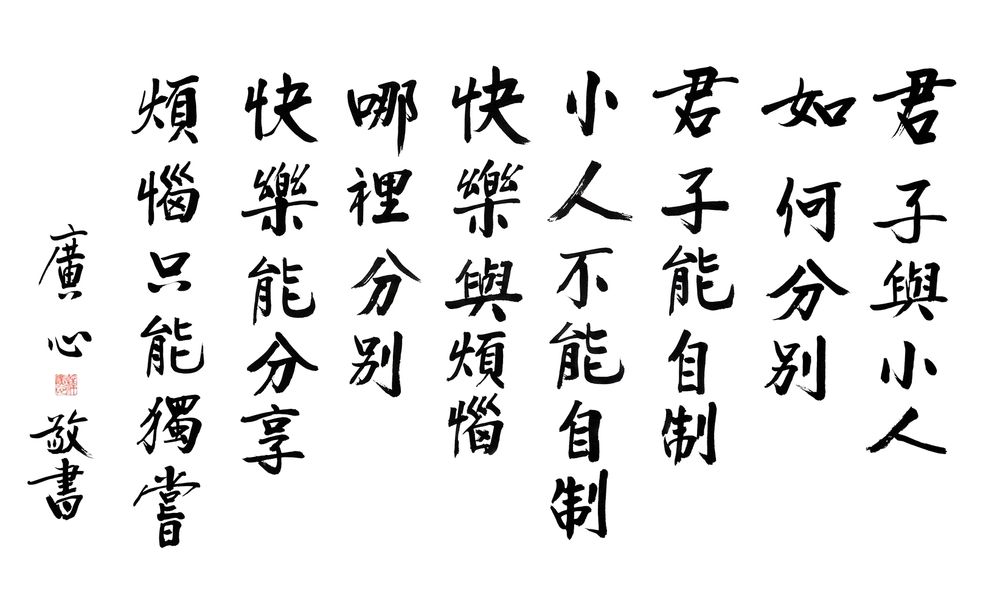 君子與小人
如何分別
君子能自制
小人不能自制
快樂與煩惱
哪裡分別
快樂能分享
煩惱只能獨嘗
廣心
敬書